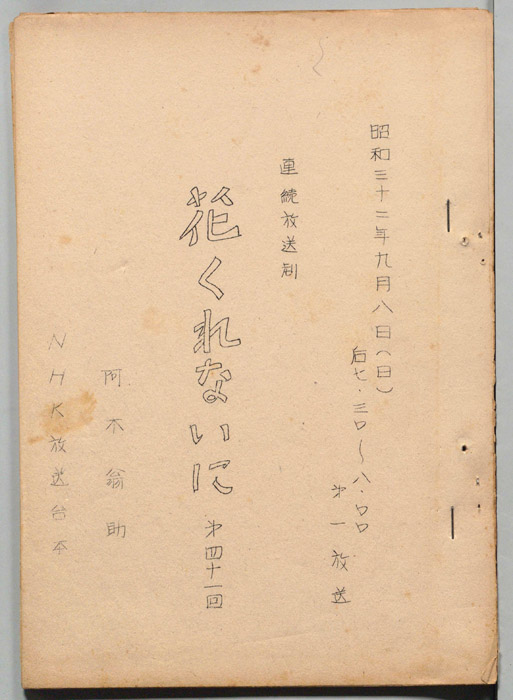 昭和三十二年九月八日(日)
后七・三〇~八・〇〇
才一放送
連続放送劇
花くれないに
才四十一回
阿木翁助
NHK放送台本